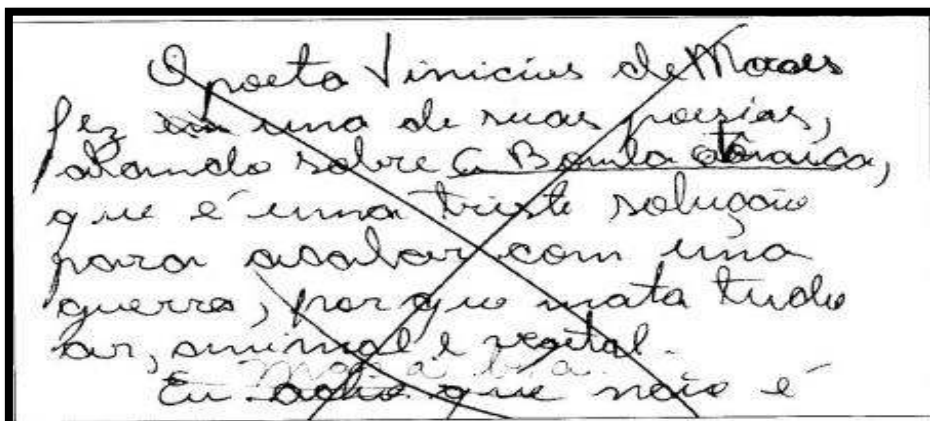 O poeta Vinicius de Moraes
fez em uma de suas poesias,
falando sobre a Bomba atômica,
que é uma triste solução
para acabar com uma
guerra, porque mata tudo
ar, animal e vegetal.
Eu acho que não é